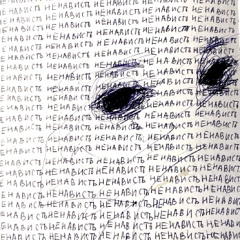 НЕНАВИСТЬ НЕНАВИСТЬ НЕНАВИСТЬ НЕНАВИСТЬ
НЕНАВИСТЬ НЕНАВИСТЬ НЕНАВИСТЬ НЕНАВИСТЬ
НЕНАВИСТЬ НЕНАВИСТЬ НЕНАВИСТЬ НЕНАВИСТЬ
НЕНАВИСТЬ НЕНАВИСТЬ НЕНАВИСТЬ
НЕНАВИСТЬ НЕНАВИСТЬ НЕНАВИСТЬ
НЕНАВИСТЬ НЕНАВИСТЬ НЕНАВИСТЬ
НЕНАВИСТЬ НЕНАВИСТЬ
НЕНАВИСТЬ НЕНАВИСТЬ
НЕНАВИСТЬ НЕНАВИСТЬ НЕНАВИСТЬ
НЕНАВИСТЬ НЕНАВИСТЬ НЕНАВИСТЬ НЕНАВИСТЬ
НЕНАВИСТЬ НЕНАВИСТЬ НЕНАВИСТЬ НЕНАВИСТЬ
НЕНАВИСТЬ НЕНАВИСТЬ НЕНАВИСТЬ НЕНАВИСТЬ
НЕНАВИСТЬ НЕНАВИСТЬ НЕНАВИСТЬ НЕНАВИСТЬ
НЕНАВИСТЬ НЕНАВИСТЬ НЕНАВИСТЬ НЕНАВИСТЬ
НЕНАВИСТЬ НЕНАВИСТЬ НЕНАВИСТЬ
НЕНАВИСТЬ НЕНАВИСТЬ НЕНАВИСТЬ
НЕНАВИСТЬ НЕНАВИСТЬ НЕНАВИСТЬ